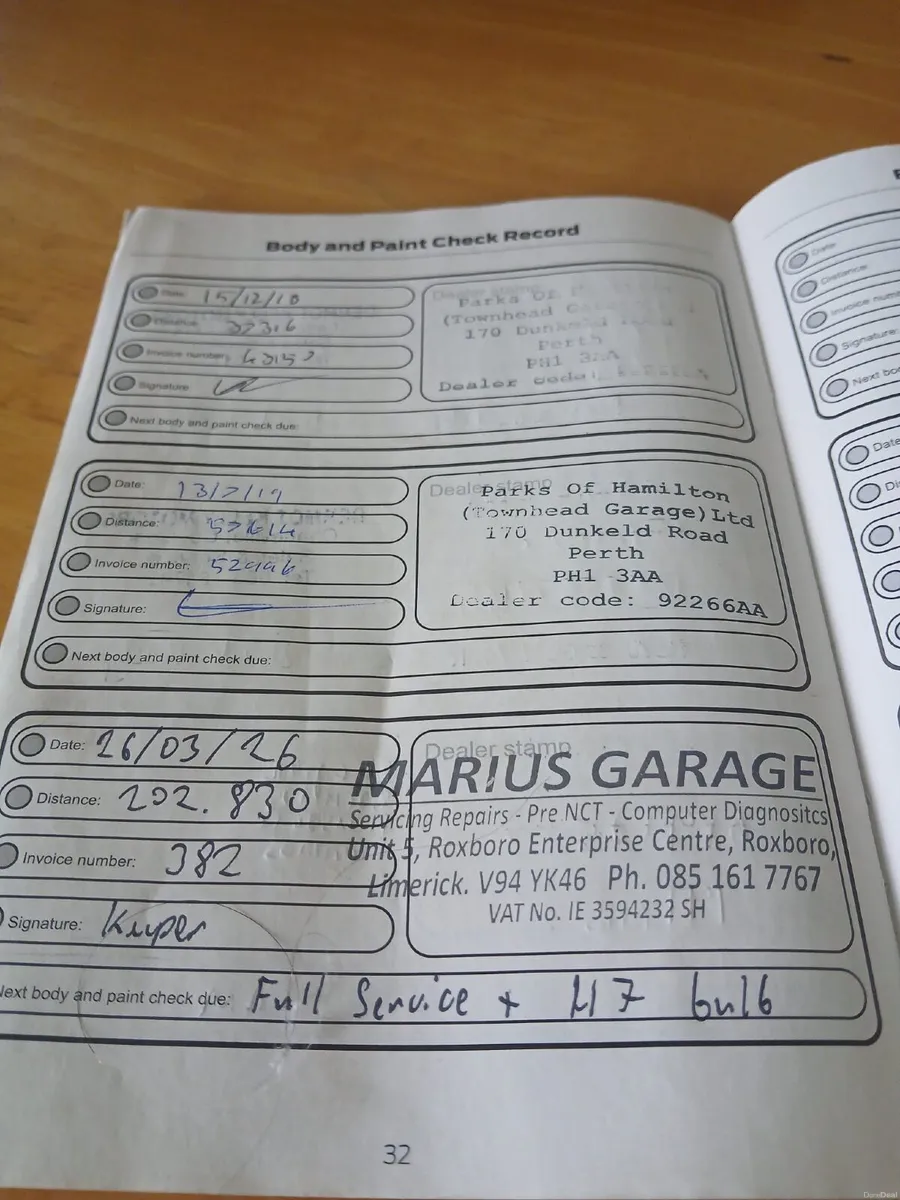 Body and Paint Check Record
Date: 15/12/10
Distance:
Invoice number:
Signature
Next body and paint check due:
Dealer stamp
Parks Of
(Townhead
170 Dunkeld Road
Perth
PH1 3AA
Dealer code:
Date:
Distance:
Invoice number:
Signature:
Next body and paint check due:
Dealer stamp
Parks Of Hamilton
(Townhead Garage)Ltd
170 Dunkeld Road
Perth
PH1 3AA
Dealer code: 92266AA
Date: 26/03/26
Distance: 202.830
Invoice number: 382
Signature:
Next body and paint check due: Full Service + H7 bulb
Dealer stamp
MARIUS GARAGE
Servicing Repairs - Pre NCT - Computer Diagnositcs
Unit 5, Roxboro Enterprise Centre, Roxboro,
Limerick. V94 YK46 Ph. 085 161 7767
VAT No. IE 3594232 SH
32
Date:
Distance:
Invoice num
Signature:
Next bo
Date
Di
DoneDeal